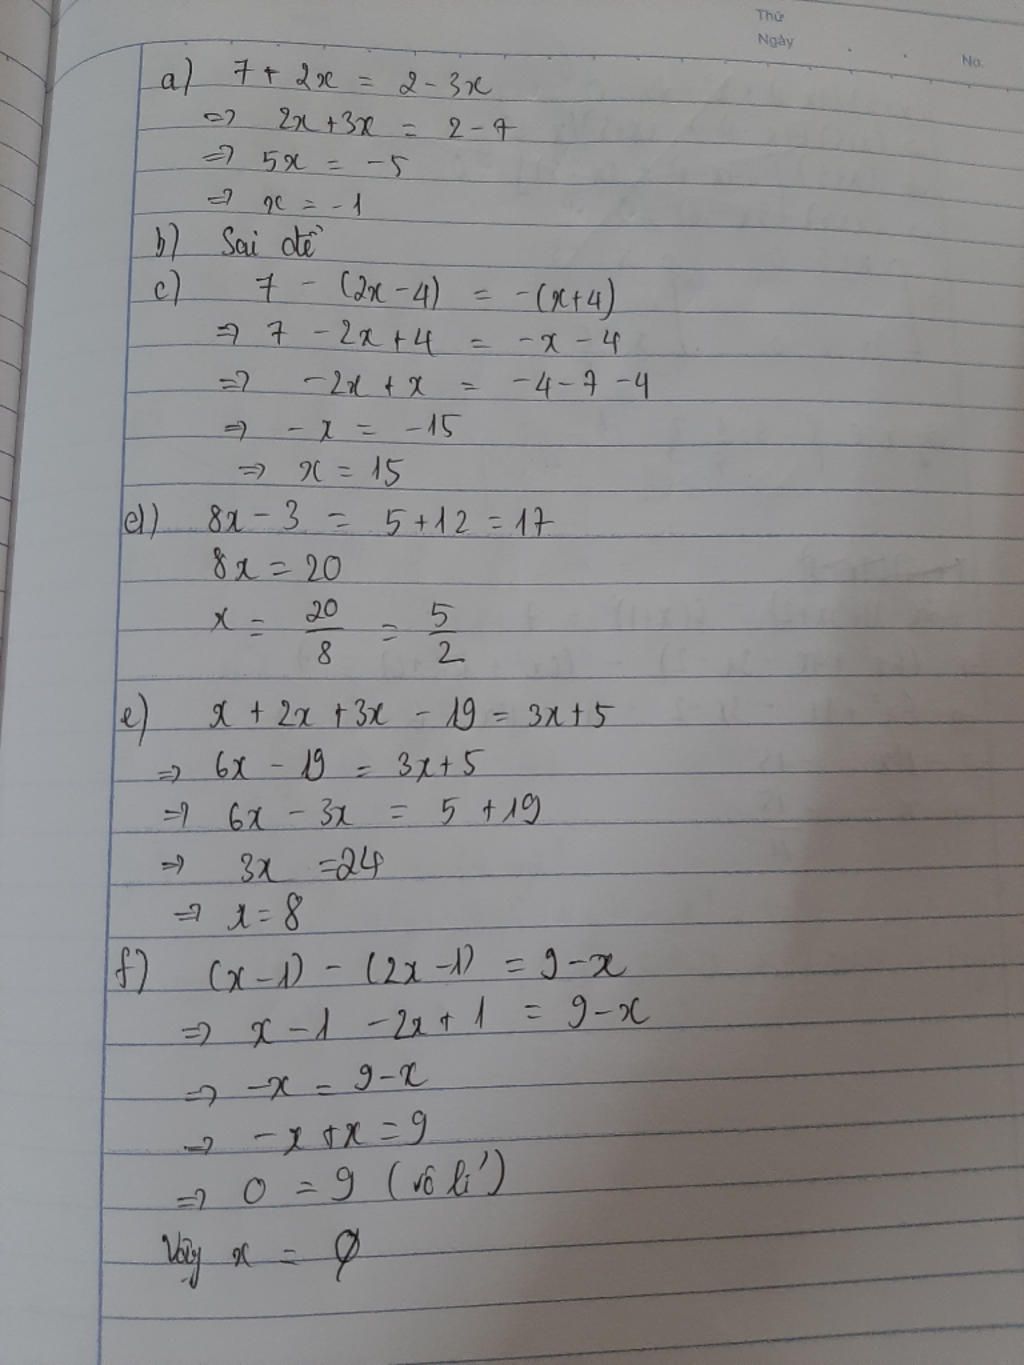 Thứ
Ngày
No.
a) 7 + 2x = 2 - 3x
=> 2x + 3x = 2 - 7
=> 5x = -5
=> x = -1
b) Sai đề
c) 7 - (2x - 4) = -(x+4)
=> 7 - 2x + 4 = -x - 4
=> -2x + x = -4 - 7 - 4
=> -x = -15
=> x = 15
d) 8x - 3 = 5 + 12 = 17
8x = 20
x = 20/8 = 5/2
e) x + 2x + 3x - 19 = 3x + 5
=> 6x - 19 = 3x + 5
=> 6x - 3x = 5 + 19
=> 3x = 24
=> x = 8
f) (x - 1) - (2x - 1) = 9 - x
=> x - 1 - 2x + 1 = 9 - x
=> -x = 9 - x
=> -x + x = 9
=> 0 = 9 (vô lí)
Vậy x = Ø